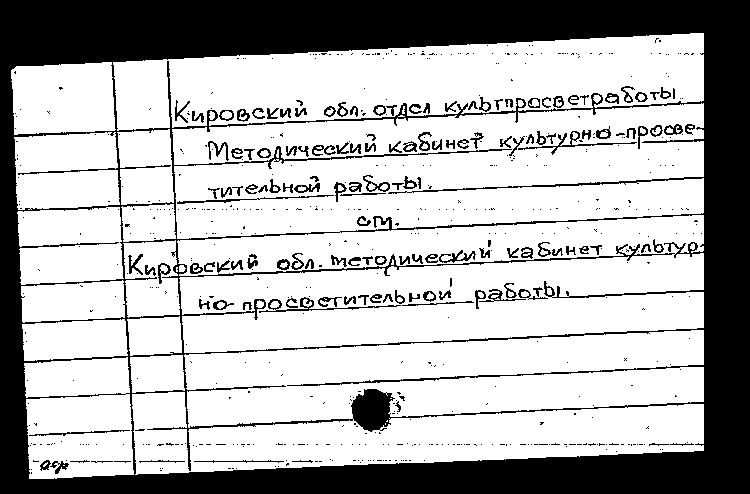 Кировский обл. отдел культпросветработы.
Методический кабинет культурно-просве-
тительной работы.
см.
Кировский обл. методический кабинет культур-
но-просветительной работы.